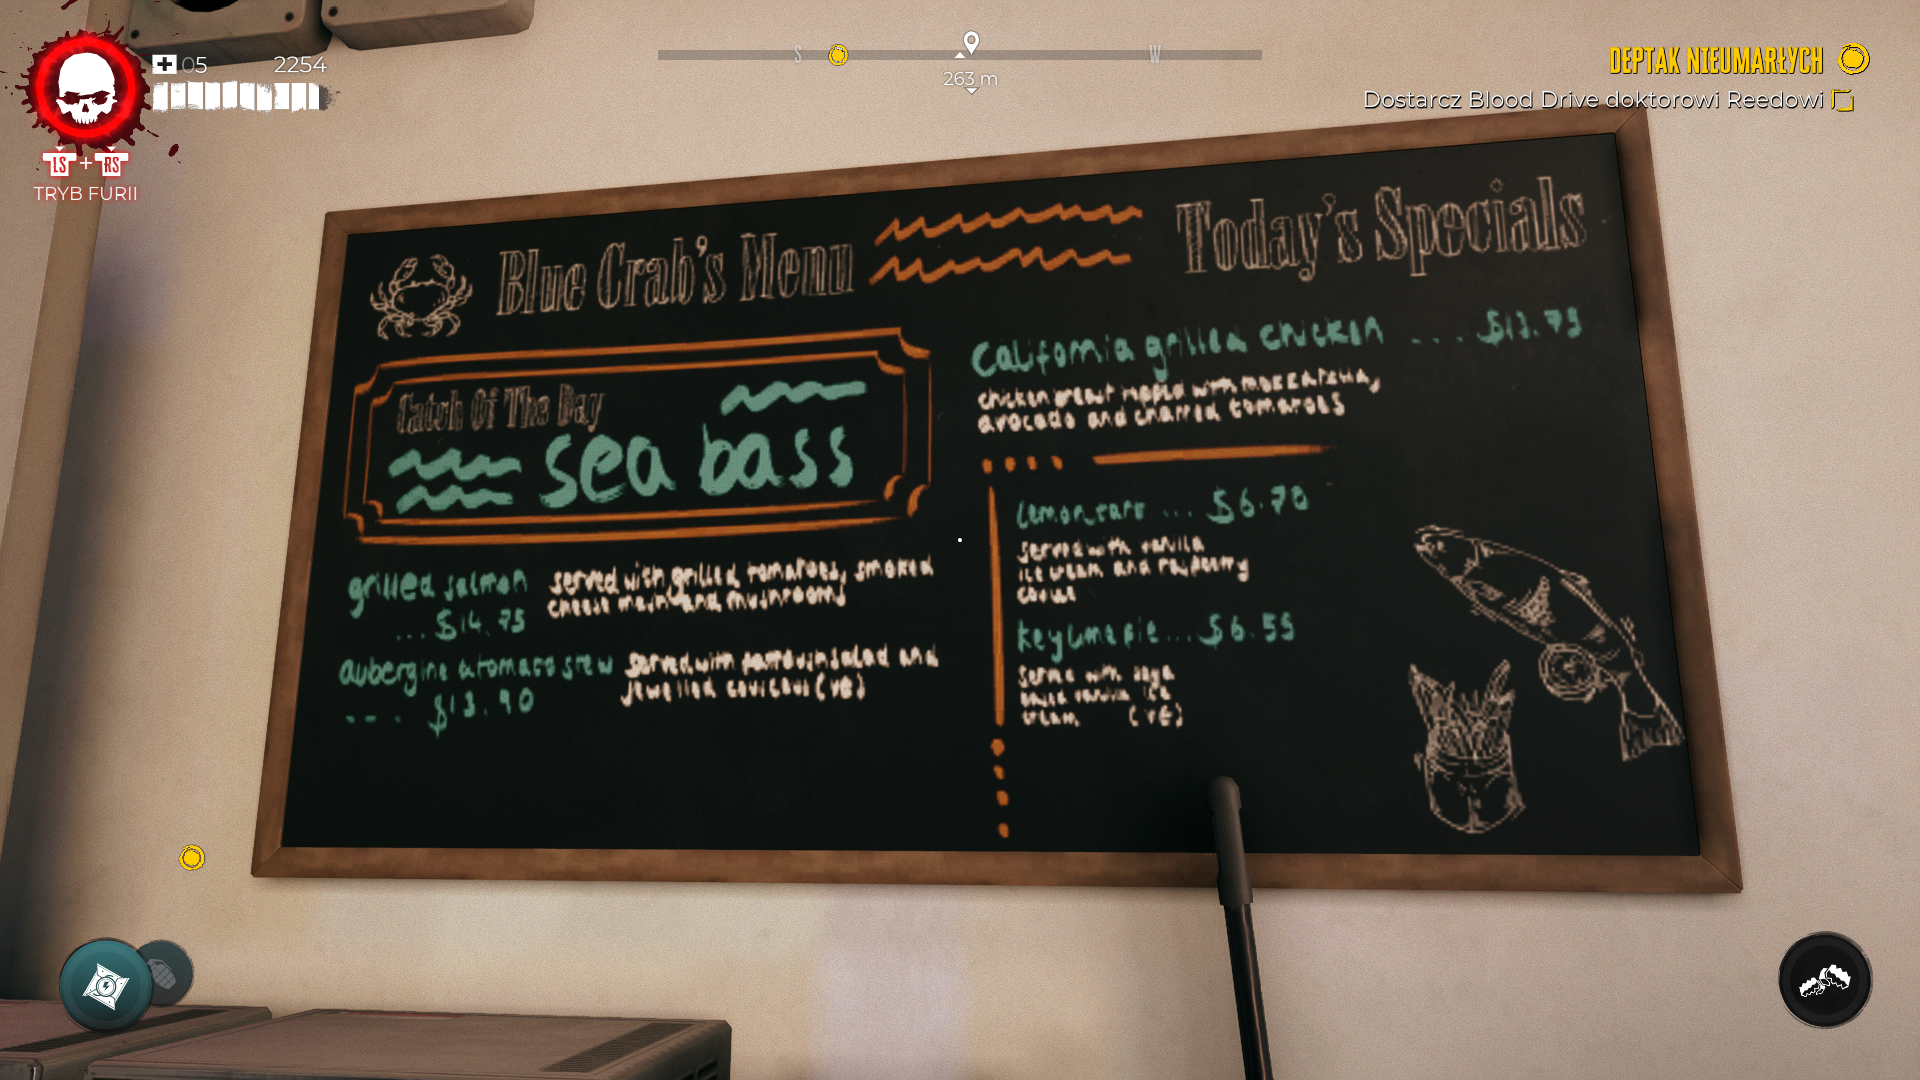 05 2254
LS + RS
TRYB FURII
S W
263 m
DEPTAK NIEUMARŁYCH
Dostarcz Blood Drive doktorowi Reedowi
Blue Crab's Menu
Catch Of The Day
sea bass
grilled salmon
... $14.75
served with grilled tomatoes, smoked
cheese mash and mushrooms
aubergine & tomato stew
.... $13.90
served with and
jewelled couscous (VE)
Today's Specials
California grilled chicken .... $13.75
chicken breast topped with mozzarella,
avocado and charred tomatoes
lemon tart ... $6.70
served with vanilla
ice cream and raspberry
key lime pie ... $6.55
with
vanilla ice
cream (VE)